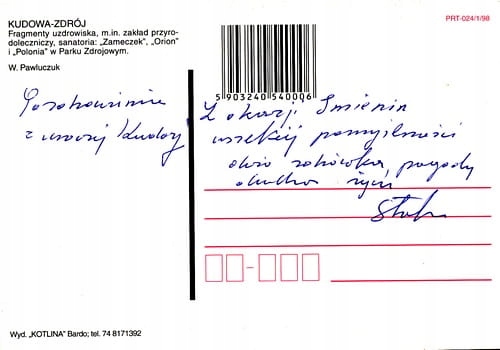 KUDOWA-ZDRÓJ
Fragmenty uzdrowiska, m.in. zakład przyro-
doleczniczy, sanatoria: „Zameczek”, „Orion”
i „Polonia” w Parku Zdrojowym.
W. Pawluczuk
PRT-024/1/98
5 903240 540006
Pozdrowienia
z uroczej Kudowy
Z okazji Imienin
wszelkiej pomyślności
dużo zdrówka, pogody
ducha życzy
Wyd. „KOTLINA” Bardo; tel. 74 8171392